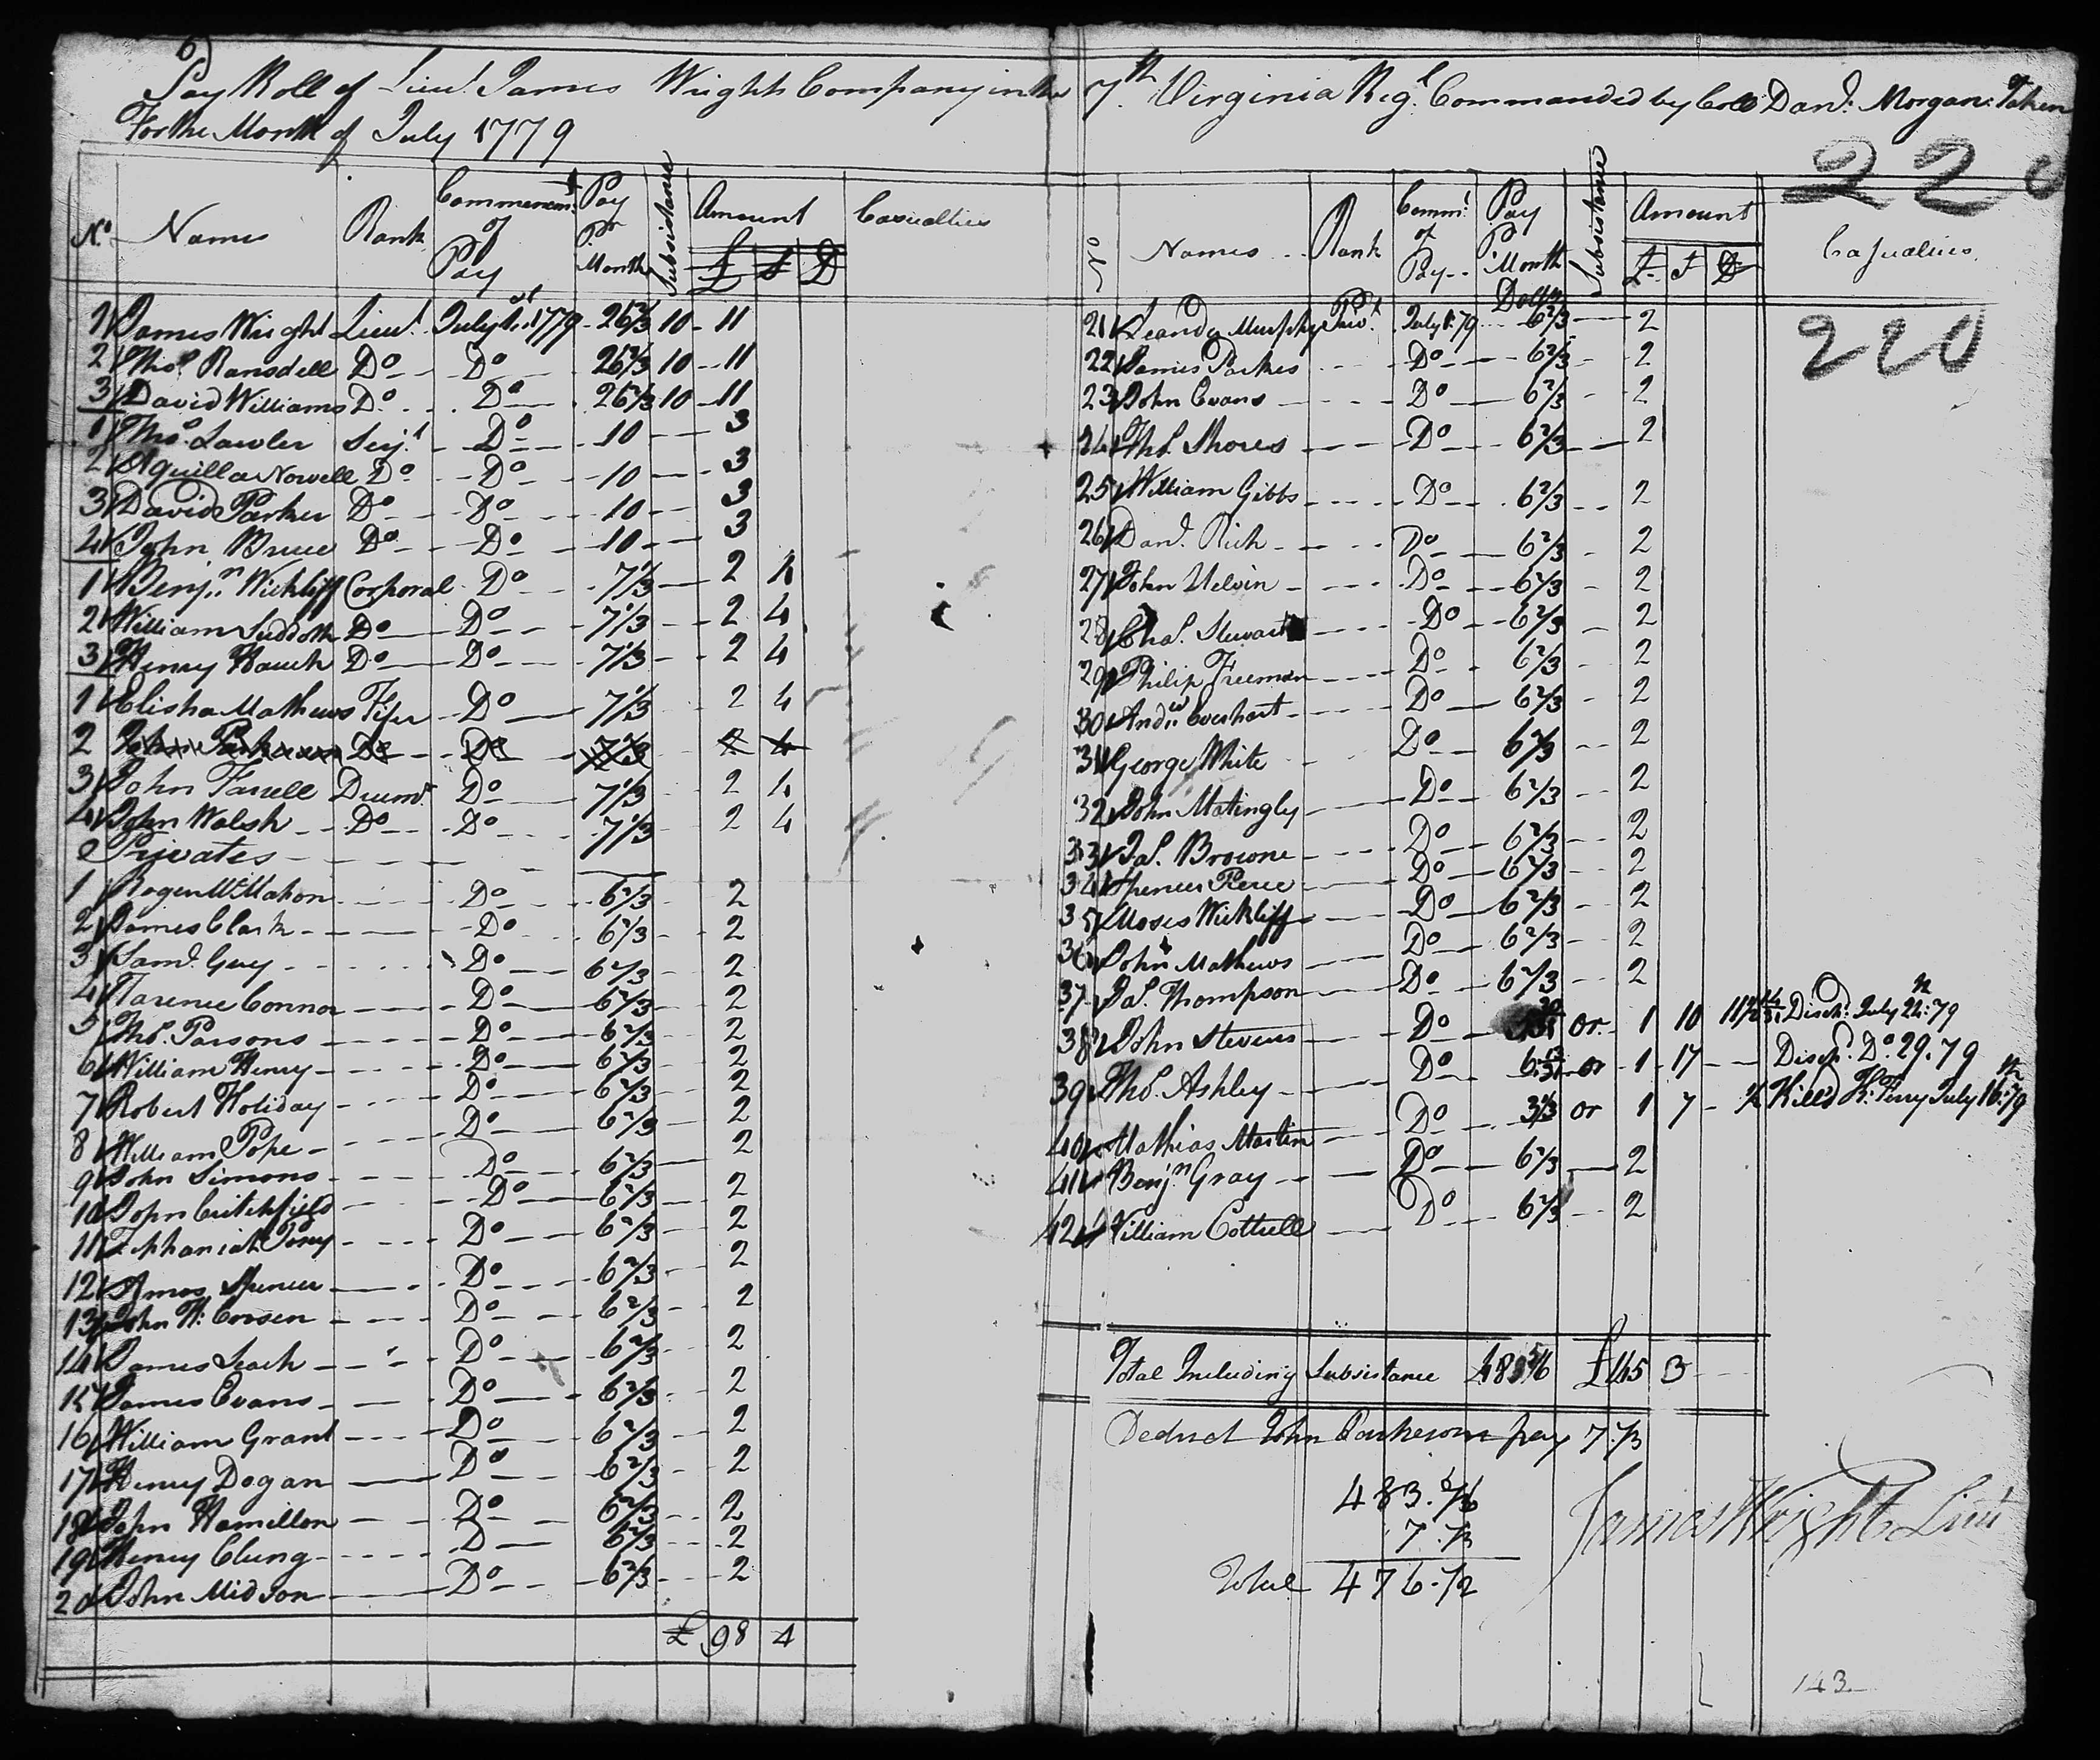 6)
Pay Roll of Lieut. James Wrights Company in the 7th Virginia Regt. Commanded by Collo Danl. Morgan Taken
For the Month of July 1779
No. Names Rank Commencemt. of Pay Pay Pr. Month Subsistance Amount £ S D Casualties
1 James Wright Lieut. July 1st. 1779 26 2/3 10 11
2 Thos. Ransdell Do Do 26 2/3 10 11
3 David Williams Do Do 26 2/3 10 11
1 Thos. Lawler Serjt. Do 10 3
2 Aquilla Nowell Do Do 10 3
3 David Parker Do Do 10 3
4 John Bruce Do Do 10 3
1 Benjn. Wickliff Corporal Do 7 1/3 2 4
2 William Suddoth Do Do 7 1/3 2 4
3 Henry Hauck Do Do 7 1/3 2 4
1 Elisha Mathews Fifer Do 7 1/3 2 4
2 John Parkerson Do Do 7 1/3 2 4
3 John Farrell Drumr. Do 7 1/3 2 4
4 John Walsh Do Do 7 1/3 2 4
Privates
1 Roger McMahon Do 6 2/3 2
2 James Clark Do 6 2/3 2
3 Saml. Guy Do 6 2/3 2
4 Tarence Connor Do 6 2/3 2
5 Thos. Parsons Do 6 2/3 2
6 William Henry Do 6 2/3 2
7 Robert Holiday Do 6 2/3 2
8 William Pope Do 6 2/3 2
9 John Simons Do 6 2/3 2
10 John Critchfield Do 6 2/3 2
11 Zephaniah Posey Do 6 2/3 2
12 Amos Spencer Do 6 2/3 2
13 John H. Crosen Do 6 2/3 2
14 James Leach Do 6 2/3 2
15 James Evans Do 6 2/3 2
16 William Grant Do 6 2/3 2
17 Henry Dogan Do 6 2/3 2
18 John Hamilton Do 6 2/3 2
19 Henry Clung D 6 2/3 2
20 John Midson Do 6 2/3 2
£ 98 4
220
No Names Rank Commt. of Pay Pay P Month Dollrs Subsistance Amount £ S D Casualties
220
21 Leander Murphy Privt. July 1st. 79 6 2/3 2
22 James Parkes Do 6 2/3 2
23 John Evans Do 6 2/3 2
24 Thos. Shores Do 6 2/3 2
25 William Gibbs Do 6 2/3 2
26 Danl. Rich Do 6 2/3 2
27 John Melvin Do 6 2/3 2
28 Chas. Stewart Do 6 2/3 2
29 Philip Freeman Do 6 2/3 2
30 Andw. Everhart Do 6 2/3 2
31 George White Do 6 2/3 2
32 John Matingly Do 6 2/3 2
33 Jas. Browne Do 6 2/3 2
34 Spencer Peirce Do 6 2/3 2
35 Moses Wickliff Do 6 2/3 2
36 John Mathews Do 6 2/3 2
37 Jas. Thompson Do 6 2/3 2
38 John Stevens Do or 1 10 11 Disch. July 24th. 79
39 Thos. Ashley Do or 1 17 Disch. Do. 29. 79
40 Mathias Martin Do or 1 7 Killd K. Ferry July 16th. 79
41 Benjn. Gray Do 6 2/3 2
42 William Cottrell Do 6 2/3 2
Total Including Subsistance 483 5/6 £145 3
Deduct John Parkersons pay 7.1/3
483.5/6
7.1/3
Total 476.1/2
James Wright Lieut
143